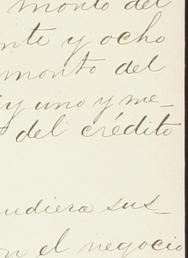 monto del
nte y ocho
monto del
y uno y me-
del crédito
udiera sus-
n el negocio